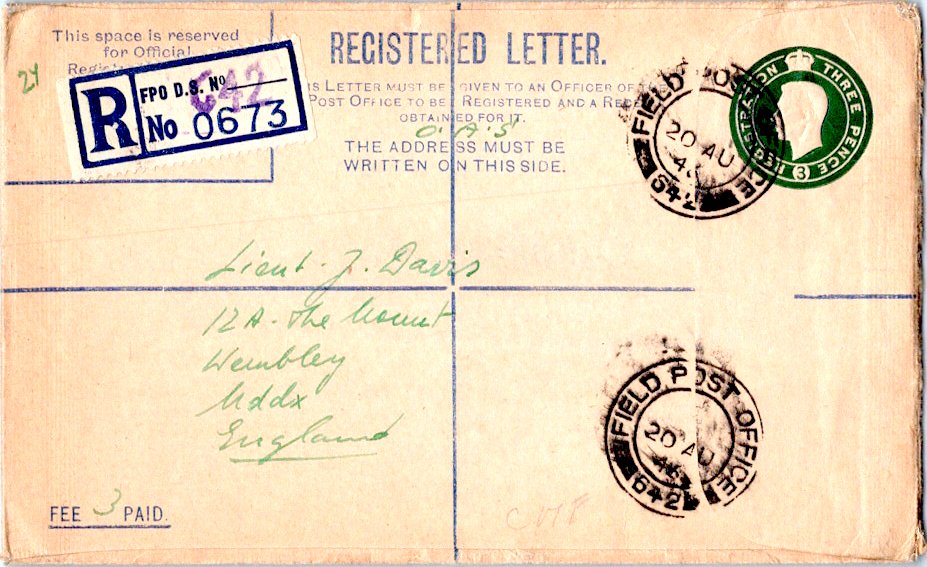 This space is reserved
for Official
REGISTERED LETTER.
24
R
FPO D.S. Nº 642
No 0673
IS LETTER MUST BE GIVEN TO AN OFFICER OF
POST OFFICE TO BE REGISTERED AND A
OBTAINED FOR IT.
O.A.S
THE ADDRESS MUST BE
WRITTEN ON THIS SIDE.
REGISTRATION THREE PENCE (3)
FIELD POST OFFICE
20 AU
642
Lieut. J. Davis
12A. The Mount
Wembley
Mddx
England
FIELD POST OFFICE
20 AU
46
642
FEE 3 PAID.